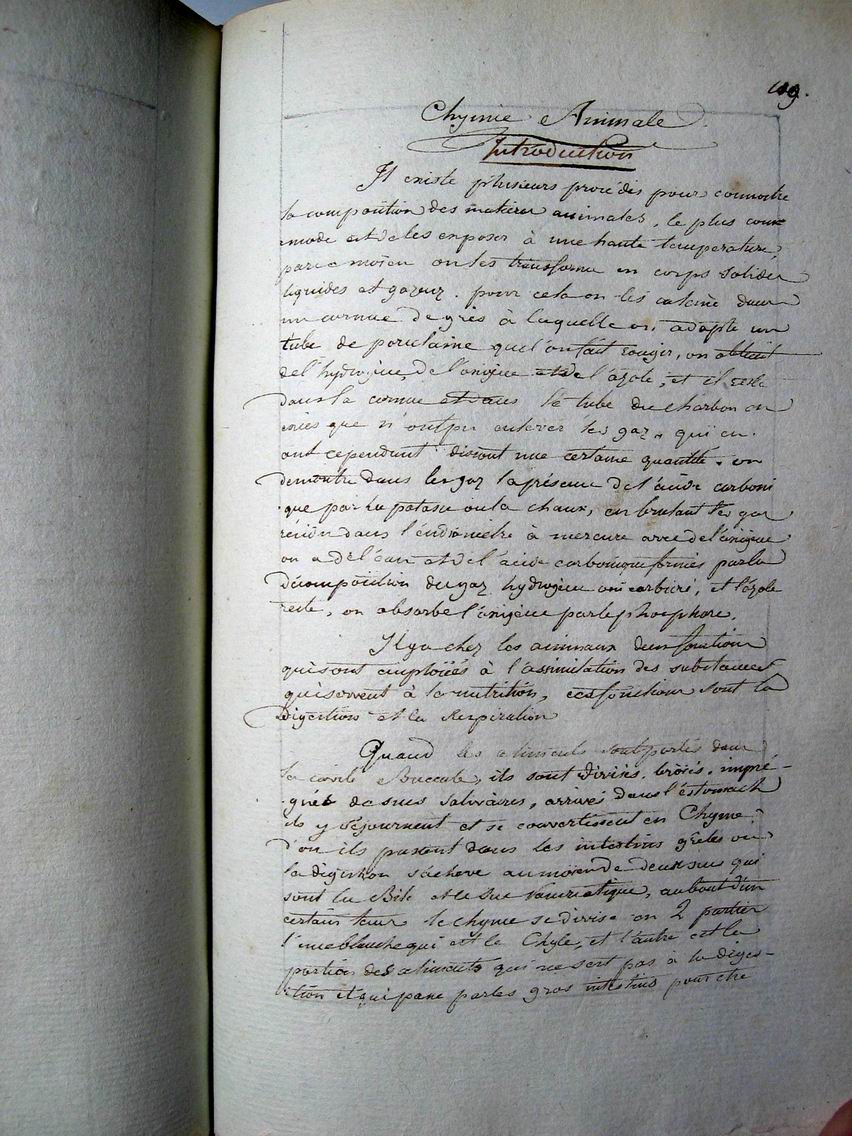 Chymie Animale
Introduction
Il existe plusieurs procédés pour connoitre
la composition des matieres animales, le plus com
mode est de les exposer à une haute température,
par ce moien on les transforme en corps solides
liquides et gazeux. pour cela on les calcine dans
un cornue de grès à laquelle on adapte un
tube de porcelaine que l'on fait rougir, on obtient
de l'hydrogène, de l'oxigène et de l'azote, et il reste
dans la cornue et dans le tube du charbon en
que n'ont pu enlever les gaz, qui en
ont cependant dissout une certaine quantité. on
demontre dans les gaz la présence de l'acide carboni
que par la potasse ou la chaux, en brulant les gaz
dans l'eudiomètre à mercure avec de l'oxigène
on a de l'eau et de l'acide carbonique formés par la
décomposition du gaz hydrogène oxi carburé, et l'azote
reste, on absorbe l'oxigène par le phosphore.
Il y a chez les animaux deux fonctions
qui sont emploiées à l'assimilation des substances
qui servent à la nutrition, ces fonctions sont la
Digestion et la Respiration
Quand les aliments sont portés dans
la cavité Buccale, ils sont divisés, broiés, impré-
gnés de sucs salivaires, arrivés dans l'estomach
ils y séjournent et se convertissent en Chyme,
d'où ils passent dans les intestins grêles où
la digestion s'acheve au moien de deux sucs qui
sont la Bile et le suc Pancréatique, au bout d'un
certain tems le chyme se divise en 2 parties
l'une blanche qui est le Chyle, et l'autre est la
portion des aliments qui ne sert pas à la diges-
tion et qui passe par les gros intestins pour être